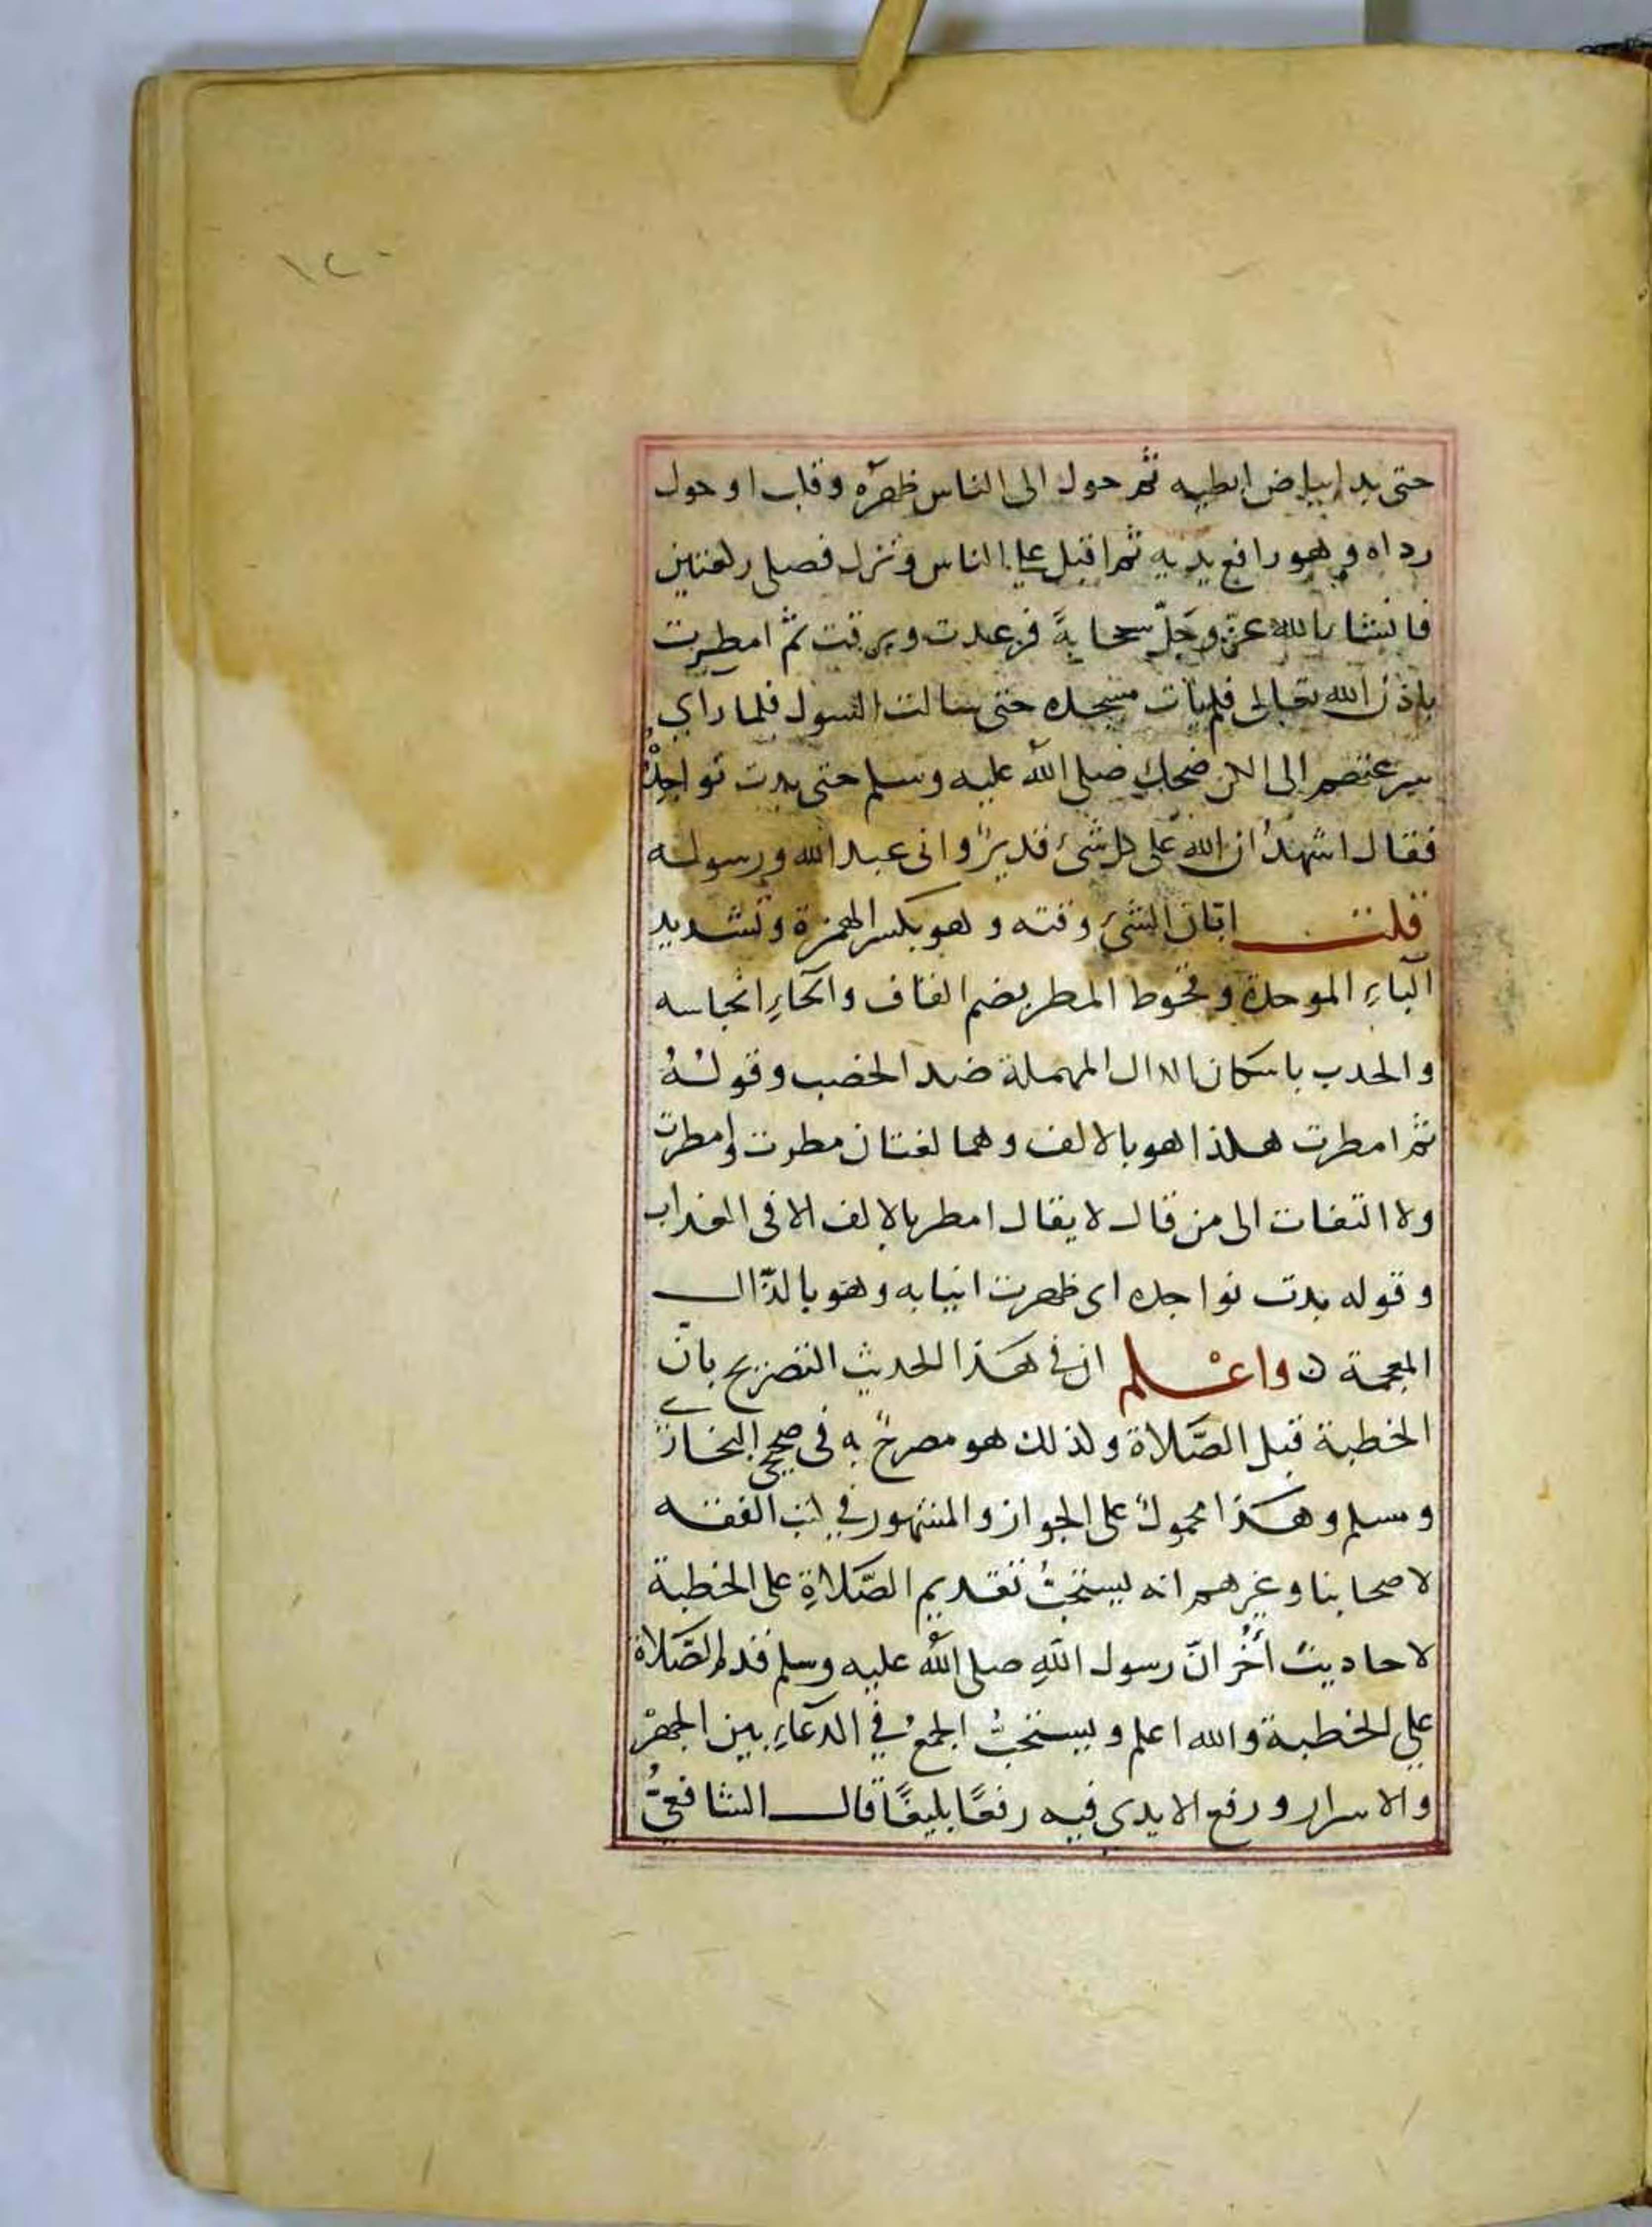 ١٢٠
حتى بدا بياض ابطيه ثم حول الى الناس ظهرَه وقلب او حول
رداه وهو رافع يديه ثم اقبل على الناس ونزل فصلى ركعتين
فانشا الله عزّ وجَلّ سحابةً فرعدت وبرقت ثمّ امطرت
باذن الله تعالى فلم يات مسجده حتى سالت السيول فلما راى
سرعتهم الى الكن ضحك صلى الله عليه وسلم حتى بدت نواجذُه
فقال اشهدُ ان الله على كل شىء قديرٌ وانى عبد الله ورسوله
قلت ابّان الشىء وقته وهو بكسر الهمزة وتشديد
الباءِ الموحدة وقحوط المطر بضم القاف والحاءِ احتباسه
والجدب باسكان الدال المهملة ضد الخصب وقولهُ
ثم امطرت هكذا هو بالالف وهما لغتان مطرت وامطرت
ولا التفات الى من قال لا يقال امطر بالالف الا فى العذاب
وقوله بدت نواجذه اى ظهرت انيابه وهو بالذّال
المعجمة ن واعْلم ان في هذا الحديث التصريح بانّ
الخطبة قبل الصَّلاة وكذلك هو مصرحٌ به فى صحيحى البخارى
ومسلم وهكذا محمولٌ على الجواز والمشهور في كتب الفقه
لاصحابنا وغيرهم انه يستحبُّ تقديم الصَّلاةِ على الخطبة
لاحاديث أُخَر انّ رسول اللهِ صلى اللهُ عليه وسلم قدم الصَّلاة
على الخطبة والله اعلم ويستحبُّ الجمعُ في الدعاءِ بين الجهرْ
والاسرار ورفع الايدى فيه رفعًا بليغًا قال الشافعىُّ